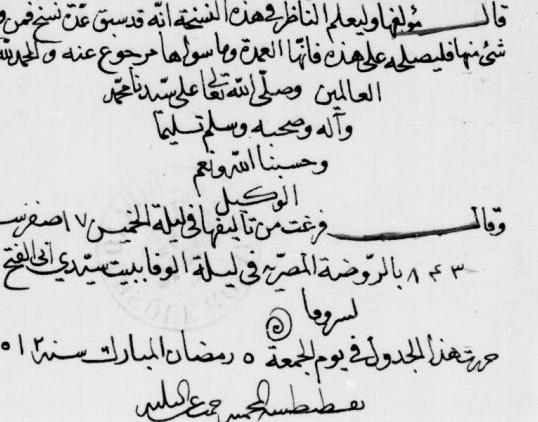 قال مؤلفها وليعلم الناظر في هذه النسخة انه قد سبق عدّة نسخ فمن و
شئ منها فليصلحه على هذه فانها العمدة وما سواها مرجوع عنه والحمد لله
العالمين وصلّى الله تعالى على سيّدنا محمّد
وآله وصحبه وسلم تسليما
وحسبنا الله ونعم
الوكيل
وقال فرغت من تأليفها في ليلة الخميس ١٧ صفر سـ
٨٤٣ بالرّوضة المصريّه في ليلة الوفا ببيت سيّدي ابى الفتح
حررت هذا الجدول في يوم الجمعة ٥ رمضان المبارك سنة